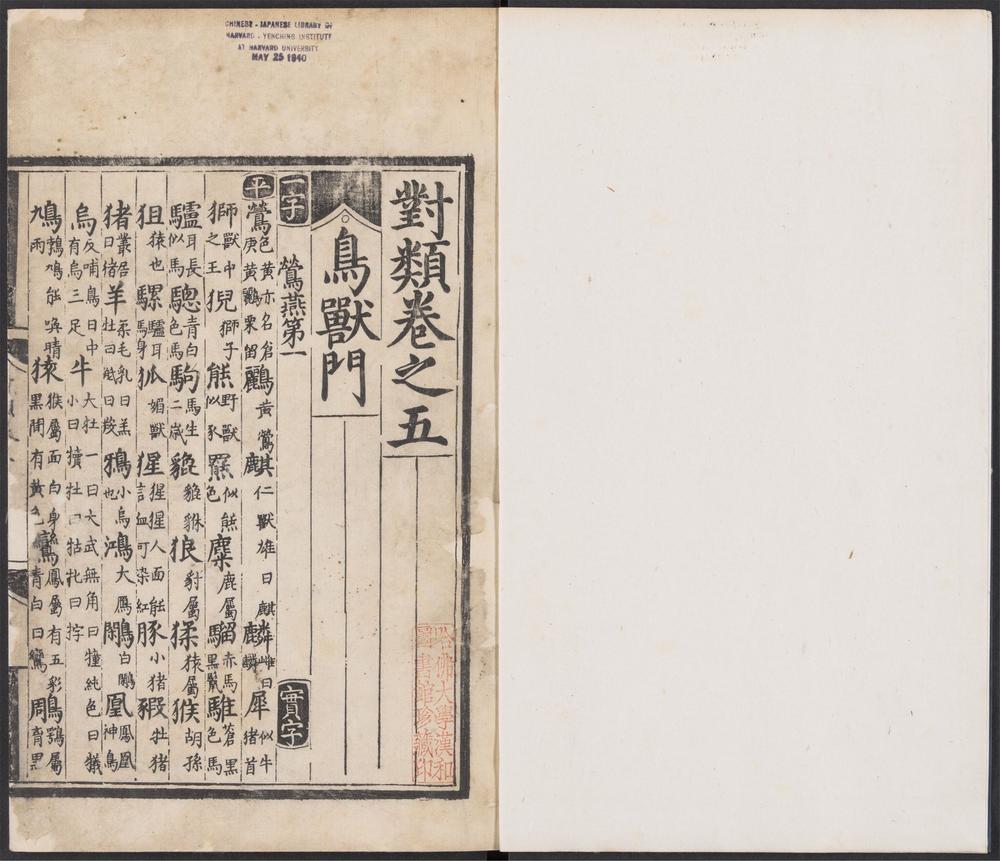 CHINESE - JAPANESE LIBRARY OF
HARVARD - YENCHING INSTITUTE
AT HARVARD UNIVERSITY
MAY 25 1940
對類卷之五
鳥獸門
一字 鶯燕第一 實字
平 鶯色黃亦名倉庚黃鸝栗留鸝黃鶯麒仁獸雄曰麒麟雌曰麟犀似牛猪首
獅獸中之王猊獅子熊野獸似豕羆似熊色麋鹿屬騮赤馬黑鬛騅蒼黑色馬
驢耳長似馬驄青白色馬駒馬生二歲貔貔貅狼豺屬猱猿屬猴胡孫
狙猿也騾驢耳馬身狐媚獸猩猩猩人面能言血可染紅豚小猪豭牡猪
猪叢居曰猪羊柔毛乳曰羔牡曰羝曰羖鴉小烏也鴻大鴈鷳白鷳凰鳳凰神鳥
烏反哺鳥日中有烏三足牛大牡一曰大武無角曰犝純色曰犠小曰犢牡曰牯牝曰牸
鳩鵓鳩能喚晴雨猿猴屬面白身黑間有黃色鸞鳳屬有五彩青白曰鸞鵰鶚屬育黑
哈佛大學漢和
圖書館珍藏印